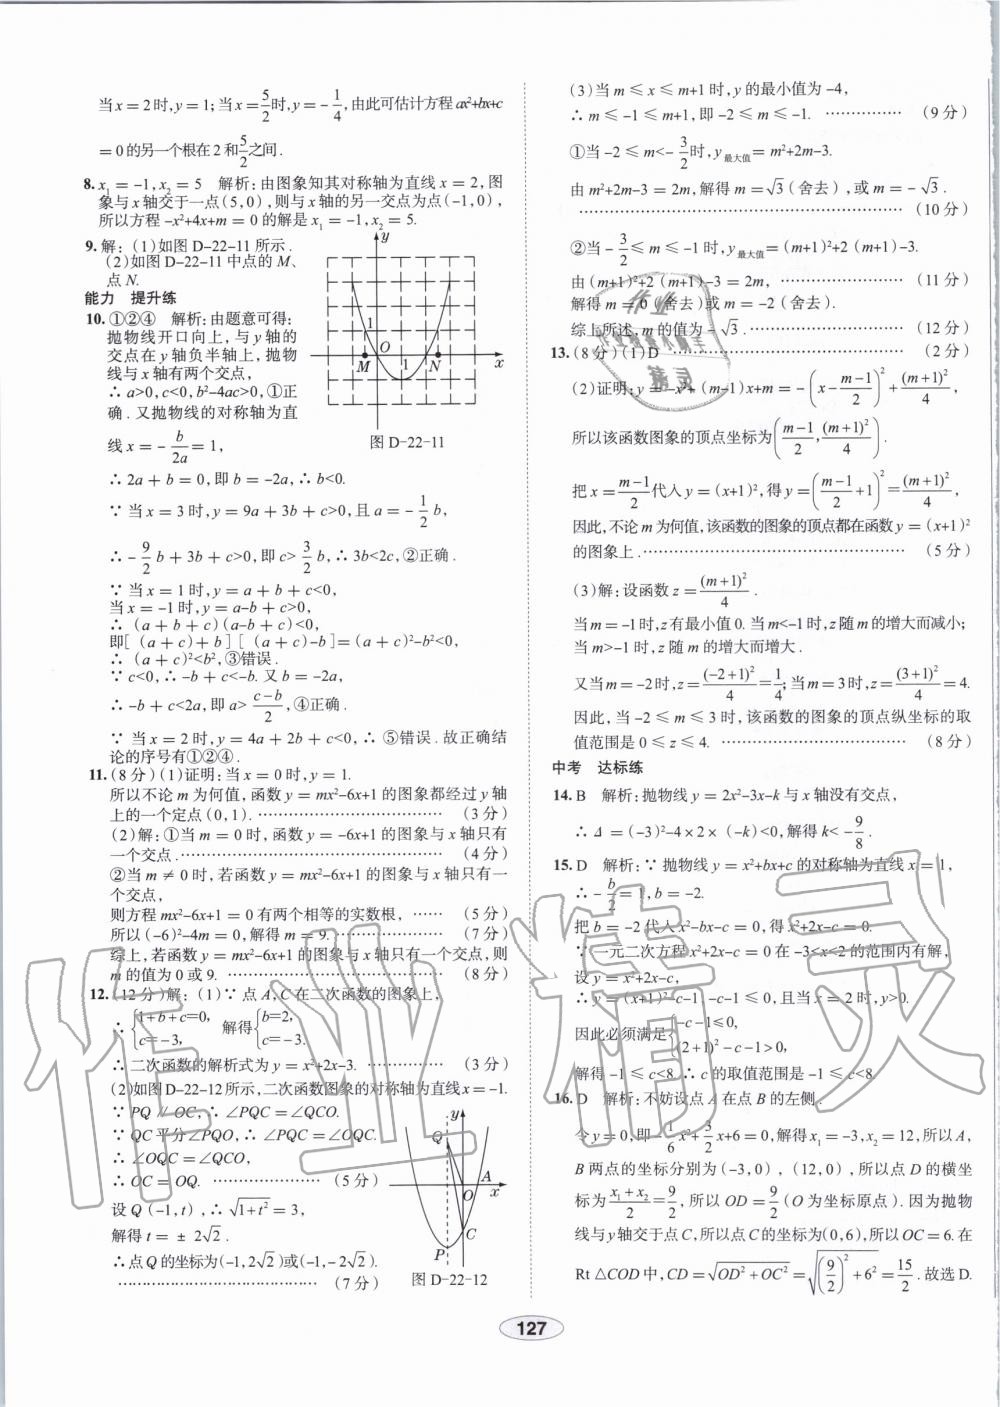 当x = 2时,y = 1;当x = 5/2时,y = -1/4,由此可估计方程ax²+bx+c
= 0的另一个根在2和5/2之间.
8. x₁ = -1,x₂ = 5　解析:由图象知其对称轴为直线x = 2,图
象与x轴交于一点(5,0),则与x轴的另一交点为点(-1,0),
所以方程-x²+4x+m = 0的解是x₁ = -1,x₂ = 5.
9. 解:(1)如图D-22-11所示.
(2)如图D-22-11中点的M、
点N.
y
1
O
M
1
N
x
图D-22-11
能力　提升练
10. ①②④　解析:由题意可得:
抛物线开口向上,与y轴的
交点在y轴负半轴上,抛物
线与x轴有两个交点,
∴ a>0,c<0,b²-4ac>0,①正
确.又抛物线的对称轴为直
线x = -b/2a = 1,
∴ 2a + b = 0,即b = -2a,∴ b<0.
∵ 当x = 3时,y = 9a + 3b + c>0,且a = -1/2 b,
∴ -9/2 b + 3b + c>0,即c> 3/2 b,∴ 3b<2c,②正确.
∵ 当x = 1时,y = a + b + c<0,
当x = -1时,y = a-b + c>0,
∴ (a + b + c)(a-b + c)<0,
即[(a + c) + b][(a + c)-b] = (a + c)²-b²<0,
∴ (a + c)²<b²,③错误.
∵ c<0,∴ -b + c<-b.又b = -2a,
∴ -b + c<2a,即a> (c-b)/2,④正确.
∵ 当x = 2时,y = 4a + 2b + c<0,∴ ⑤错误.故正确结
论的序号有①②④.
11. (8分)(1)证明:当x = 0时,y = 1.
所以不论m为何值,函数y = mx²-6x+1的图象都经过y轴
上的一个定点(0,1). ……………… (3分)
(2)解:①当m = 0时,函数y = -6x+1的图象与x轴只有
一个交点. ……………… (4分)
②当m ≠ 0时,若函数y = mx²-6x+1的图象与x轴只有一
个交点,
则方程mx²-6x+1 = 0有两个相等的实数根, …… (5分)
所以(-6)²-4m = 0,解得m = 9. ……………… (7分)
综上,若函数y = mx²-6x+1的图象与x轴只有一个交点,则
m的值为0或9. ……………… (8分)
12. (12分)解:(1)∵ 点A,C在二次函数的图象上,
∴ {1+b+c=0, c=-3,　解得 {b=2, c=-3.
∴ 二次函数的解析式为y = x²+2x-3. …………… (3分)
(2)如图D-22-12所示,二次函数图象的对称轴为直线x = -1.
∵ PQ // OC,∴ ∠PQC = ∠QCO.
∵ QC平分∠PQO,∴ ∠PQC = ∠OQC.
∴ ∠OQC = ∠QCO,
∴ OC = OQ. ……………… (5分)
设Q(-1,t),∴ √(1+t²) = 3,
解得t = ± 2√2.
∴ 点Q的坐标为(-1,2√2)或(-1,-2√2).
……………… (7分)
y
Q
O
A
x
C
P
图D-22-12
(3)当m ≤ x ≤ m+1时,y的最小值为-4,
∴ m ≤ -1 ≤ m+1,即-2 ≤ m ≤ -1. …………… (9分)
①当-2 ≤ m< -3/2时,y最大值 = m²+2m-3.
由m²+2m-3 = 2m,解得m = √3(舍去),或m = -√3.
……………… (10分)
②当-3/2 ≤ m ≤ -1时,y最大值 = (m+1)²+2(m+1)-3.
由(m+1)²+2(m+1)-3 = 2m, ……………… (11分)
解得m = 0(舍去)或m = -2(舍去).
综上所述,m的值为-√3. ……………… (12分)
13. (8分)(1)D ……………… (2分)
(2)证明:y = -x²+(m-1)x+m = -(x - (m-1)/2)² + (m+1)²/4,
所以该函数图象的顶点坐标为((m-1)/2, (m+1)²/4).
把x = (m-1)/2代入y = (x+1)²,得y = ((m-1)/2 +1)² = (m+1)²/4,
因此,不论m为何值,该函数的图象的顶点都在函数y = (x+1)²
的图象上. ……………… (5分)
(3)解:设函数z = (m+1)²/4.
当m = -1时,z有最小值0.当m<-1时,z随m的增大而减小;
当m>-1时,z随m的增大而增大.
又当m = -2时,z = (-2+1)²/4 = 1/4;当m = 3时,z = (3+1)²/4 = 4.
因此,当-2 ≤ m ≤ 3时,该函数的图象的顶点纵坐标的取
值范围是0 ≤ z ≤ 4. ……………… (8分)
中考　达标练
14. B　解析:抛物线y = 2x²-3x-k与x轴没有交点,
∴ Δ = (-3)²-4×2×(-k)<0,解得k< -9/8.
15. D　解析:∵ 抛物线y = x²+bx+c的对称轴为直线x = 1,
∴ -b/2 = 1,b = -2.
把b = -2代入x²-bx-c = 0,得x²+2x-c = 0.
∵ 一元二次方程x²+2x-c = 0在-3<x<2的范围内有解,
设y = x²+2x-c,
∴ y = (x+1)²-c-1,-c-1 ≤ 0,且当x = 2时,y>0.
因此必须满足 {-c-1≤0, (2+1)²-c-1>0,
解得-1 ≤ c<8.∴ c的取值范围是-1 ≤ c<8.
16. D　解析:不妨设点A在点B的左侧.
令y = 0,即-1/6 x²+3/2 x+6 = 0,解得x₁ = -3,x₂ = 12,所以A,
B两点的坐标分别为(-3,0),(12,0),所以点D的横坐
标为(x₁+x₂)/2 = 9/2,所以OD = 9/2(O为坐标原点).因为抛物
线与y轴交于点C,所以点C的坐标为(0,6),所以OC = 6.在
Rt △COD中,CD = √(OD²+OC²) = √((9/2)²+6²) = 15/2.故选D.
127
作业精灵